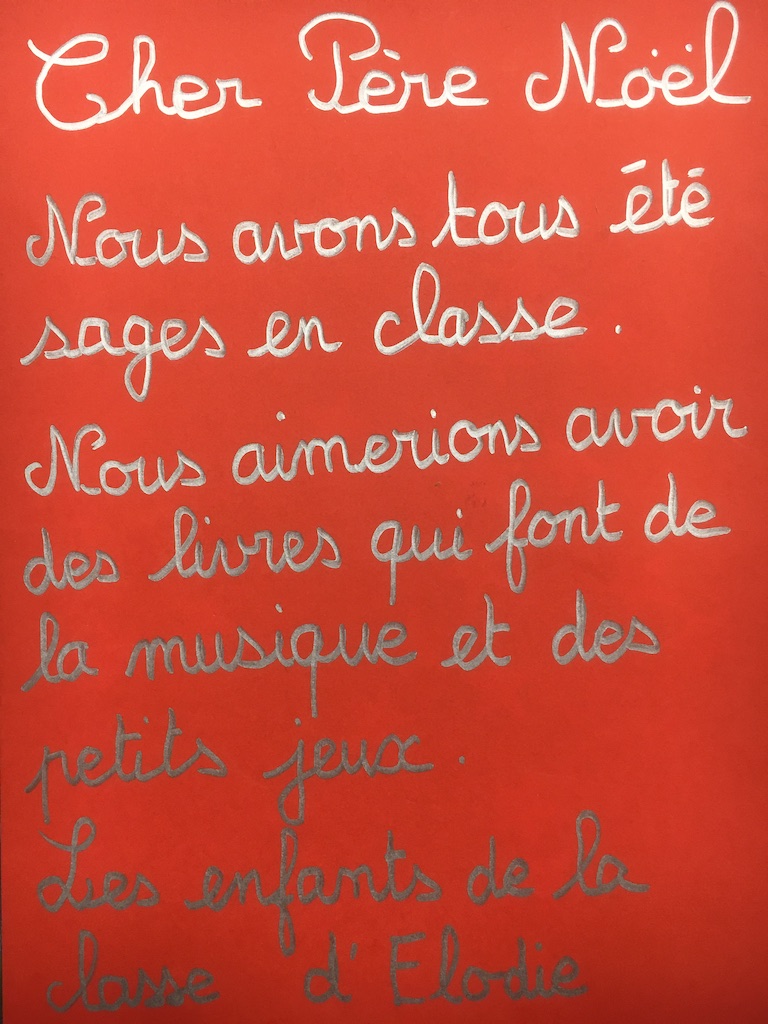 Cher Père Noël
Nous avons tous été
sages en classe.
Nous aimerions avoir
des livres qui font de
la musique et des
petits jeux.
Les enfants de la
classe d'Elodie